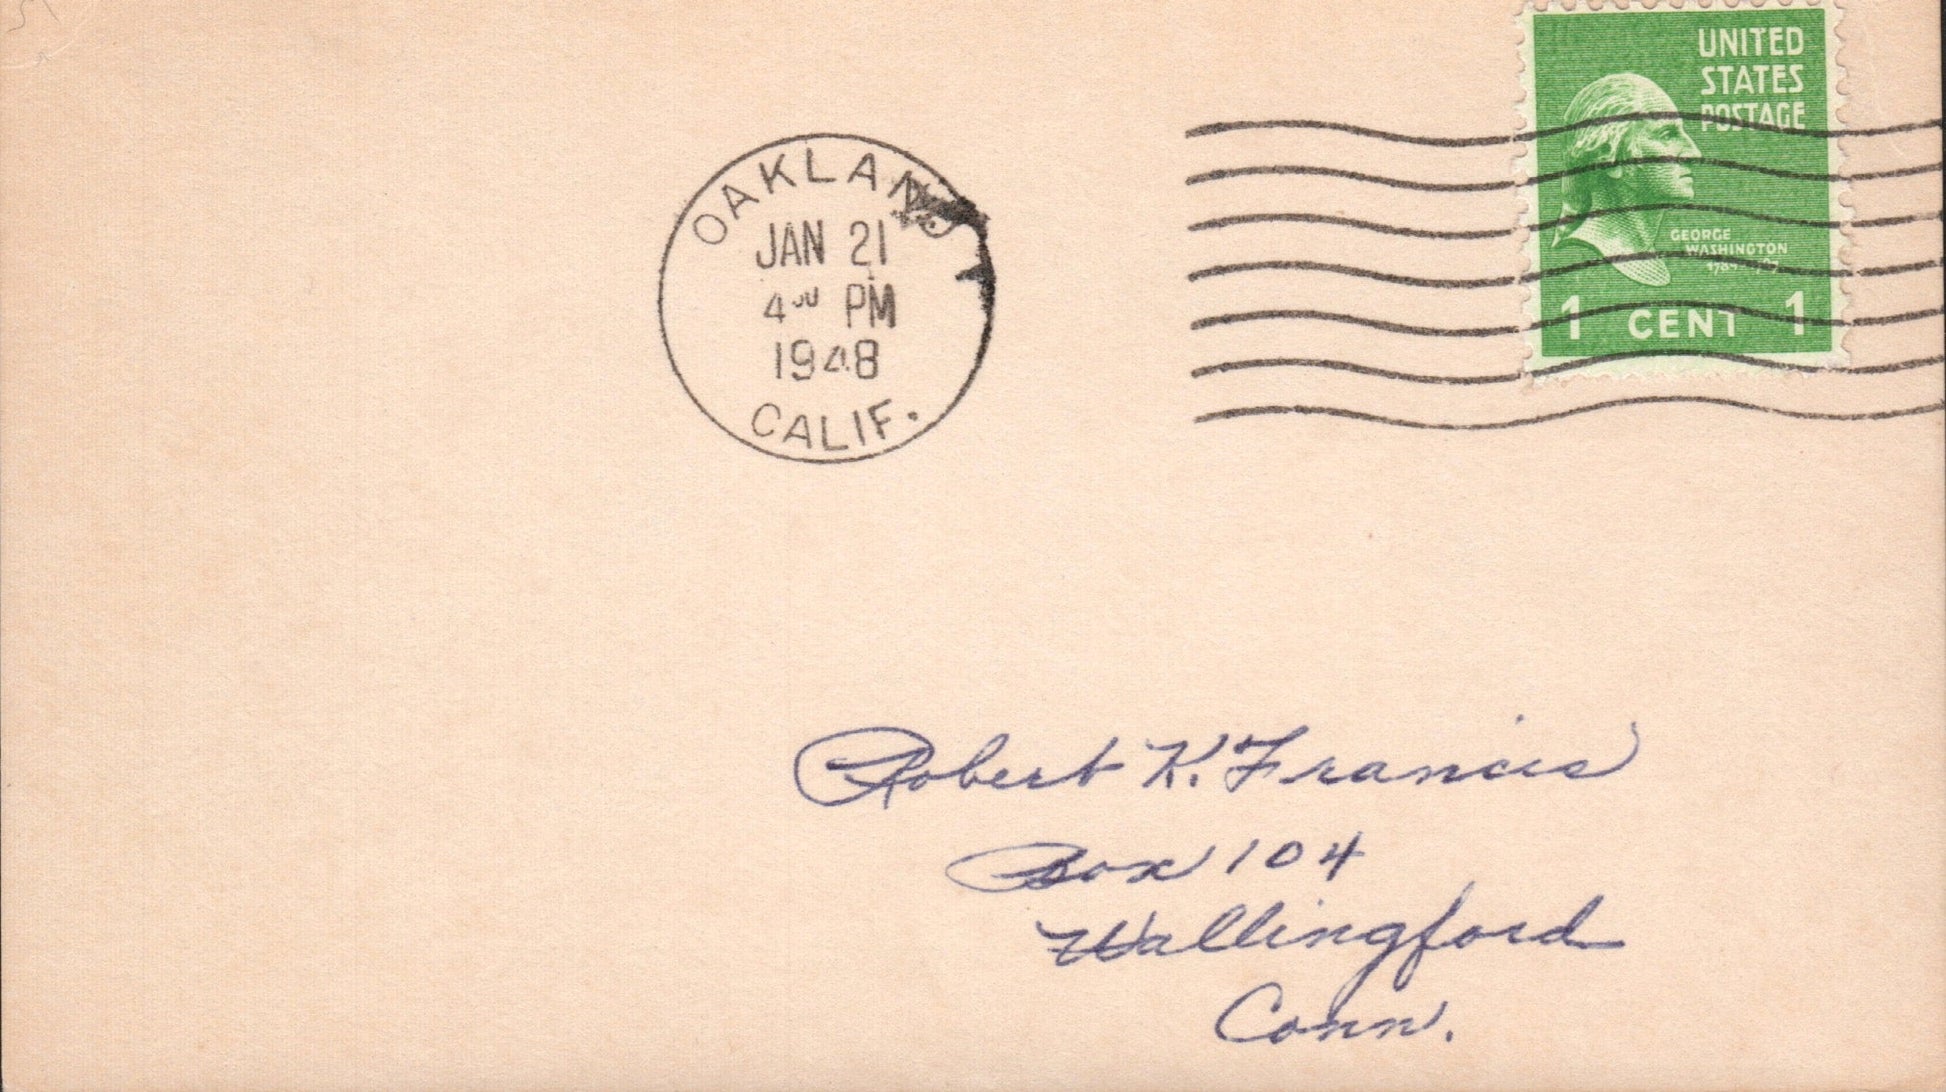 UNITED
STATES
POSTAGE
GEORGE
WASHINGTON
1 CENT 1
OAKLAND
JAN 21
4 00 PM
1948
CALIF.
Robert K. Francis
Box 104
Wallingford
Conn.